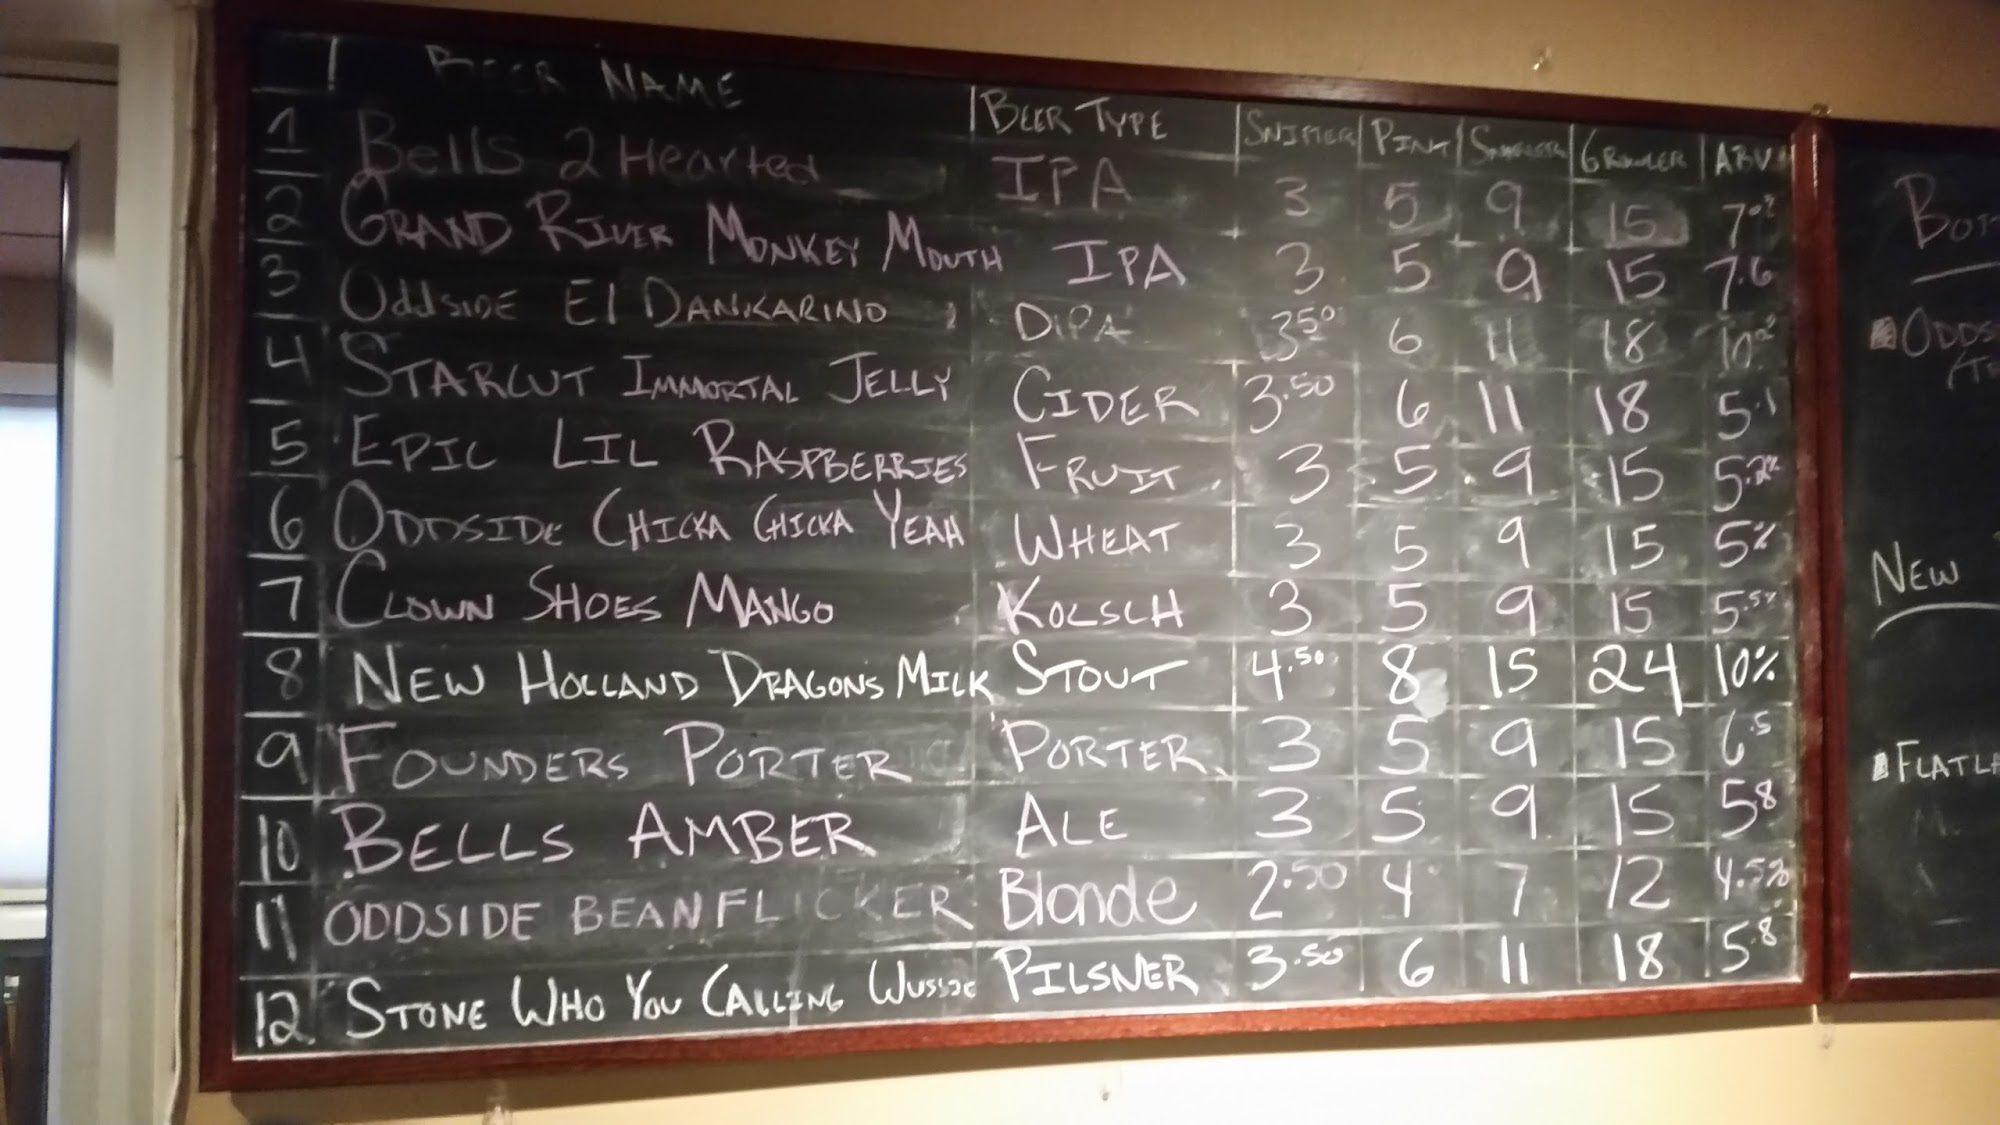 BEER NAME BEER TYPE SNIFTER PINT GROWLER ABV
1 Bells 2 Hearted IPA 3 5 9 15 7
2 GRAND RIVER MONKEY MOUTH IPA 3 5 9 15 7.6
3 Oddside El DANKARINO DIPA 3.50 6 11 18 10
4 STARCUT IMMORTAL JELLY CIDER 3.50 6 11 18 5.1
5 EPIC LIL RASPBERRIES FRUIT 3 5 9 15 5.2%
6 ODDSIDE CHICKA CHICKA YEAH WHEAT 3 5 9 15 5%
7 CLOWN SHOES MANGO KOLSCH 3 5 9 15 5.5%
8 NEW HOLLAND DRAGONS MILK STOUT 4.50 8 15 24 10%
9 FOUNDERS PORTER PORTER 3 5 9 15 6.5
10 BELLS AMBER ALE 3 5 9 15 5.8
11 ODDSIDE BEANFLICKER Blonde 2.50 4 7 12 4.5%
12 STONE WHO YOU CALLING WUSSIE PILSNER 3.50 6 11 18 5.8
NEW